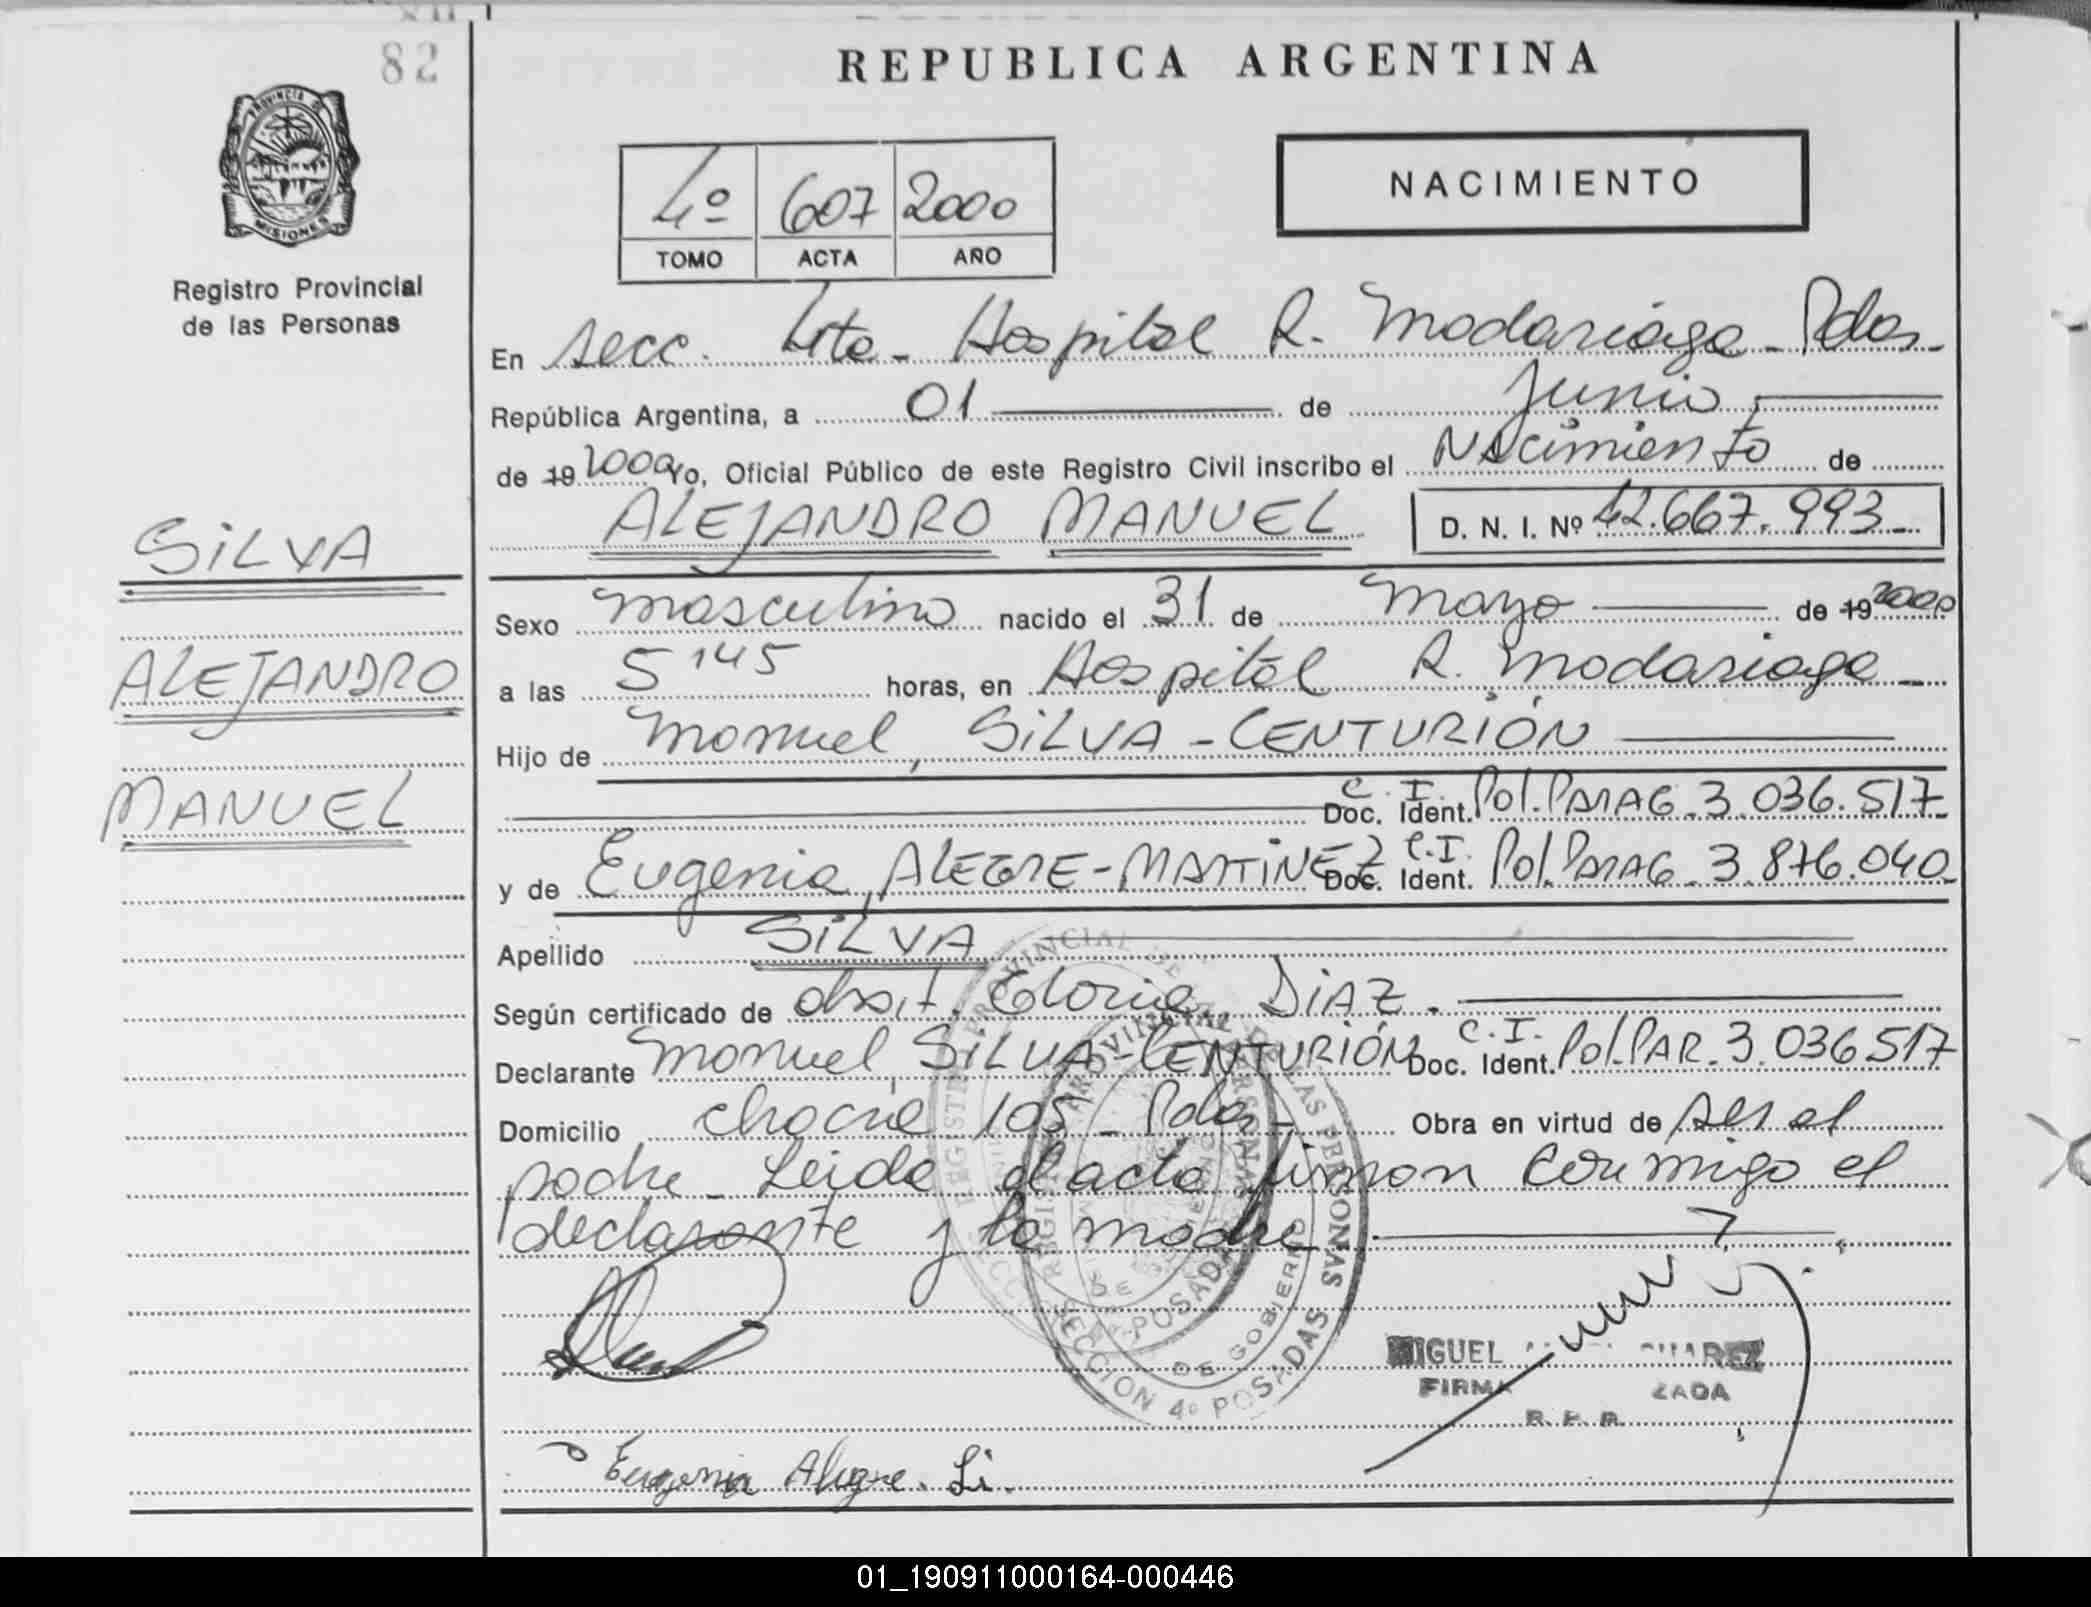 82
REPUBLICA ARGENTINA
PROVINCIA DE
MISIONES
4º 607 2000
TOMO ACTA AÑO
NACIMIENTO
Registro Provincial
de las Personas
En Secc. 4ta - Hospital R. Madariaga - Pdas -
República Argentina, a 01 de Junio,
de 19 2000 Yo, Oficial Público de este Registro Civil inscribo el Nacimiento de
ALEJANDRO MANUEL D. N. I. Nº 42.667.993
SILVA
ALEJANDRO
MANUEL
Sexo masculino nacido el 31 de mayo de 19 2000
a las 5,45 horas, en Hospital R. Madariaga -
Hijo de Manuel, SILVA - CENTURIÓN
Doc. Ident. C. I. Pol. PARAG. 3.036.517
y de Eugenia, ALEGRE - MARTINEZ Doc. Ident. C.I. Pol. PARAG. 3.876.040
Apellido SILVA
Según certificado de obst. Gloria DIAZ.
Declarante Manuel, SILVA - CENTURIÓN Doc. Ident. C. I. Pol. PAR. 3.036517
Domicilio chacra 105 - Pdas - Obra en virtud de ser el
padre - Leida el acta firman conmigo el
declarante y la madre
REGISTRO PROVINCIAL DE LAS PERSONAS
SECCION 4º POSADAS
DE GOBIERNO
MIGUEL SUAREZ
FIRMA ZADA
R. P. P.
Eugenia Alegre.
01_190911000164-000446